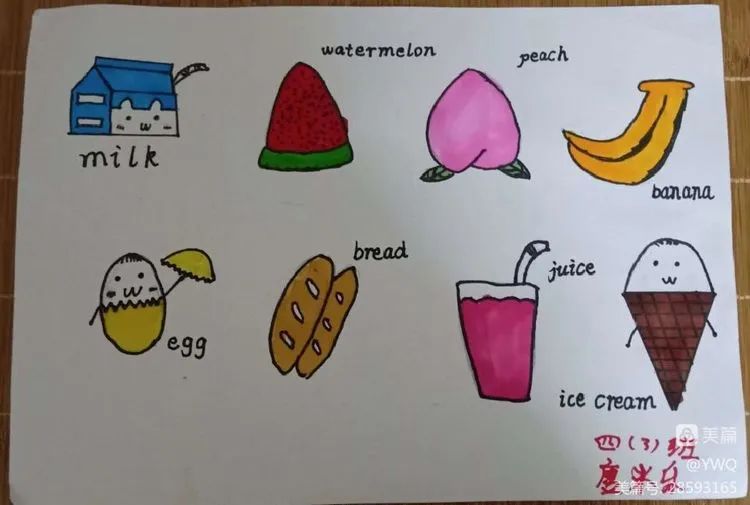 watermelon
peach
milk
banana
bread
juice
egg
ice cream
四(3)班
美篇
@YWQ
美篇号:28593165